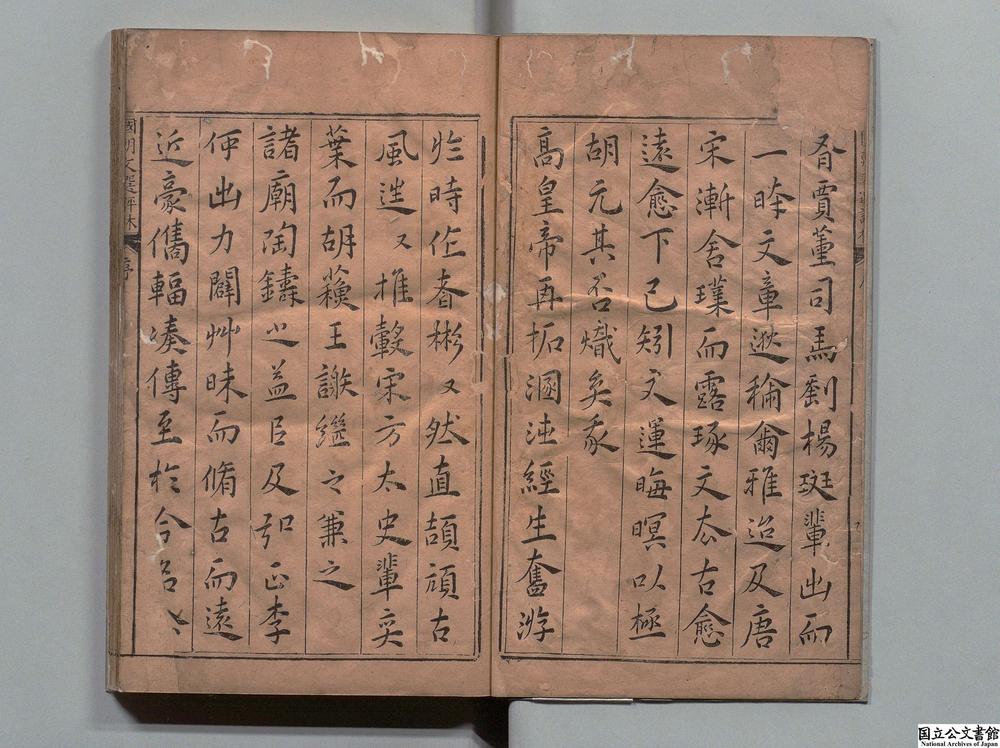 胥賈董司馬劉楊班輩出而
一時文章遂稱爾雅迨及唐
宋漸舍璞而露琢文太古愈
遠愈下已矧文運晦暝以極
胡元其否熾矣我
高皇帝再拓溷沌經生奮游
於時作者彬〻然直頡頏古
風迨又推轂宋方太史輩奕
葉而胡蘓王謝繼之兼之
諸廟陶鑄之益臣及弘正李
何出力闢艸昧而脩古而遠
近豪儁輻湊傳至於今
國朝文選評林
序
国立公文書館
National Archives of Japan